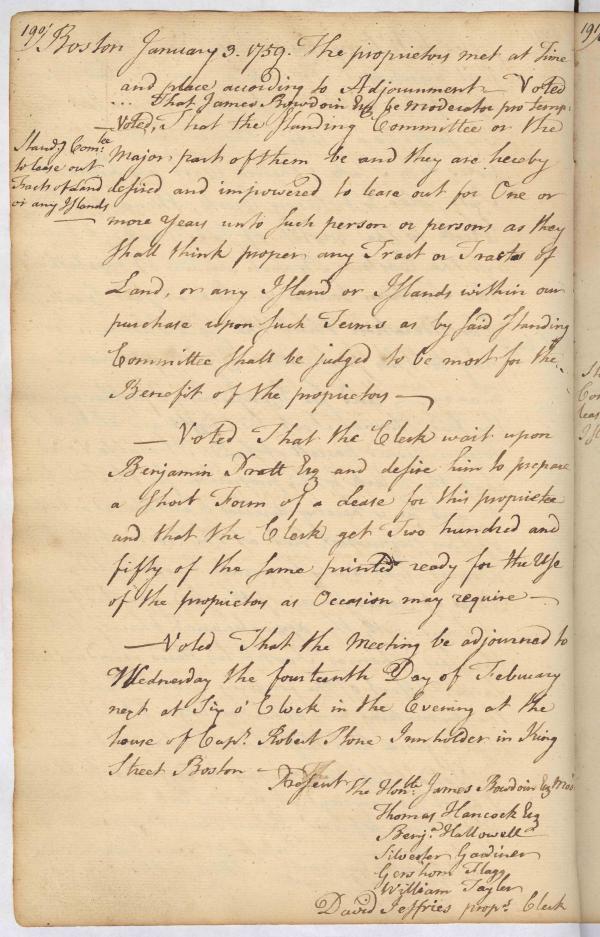 190/ Boston January 3. 1759. The proprietors met at Time
and place according to Adjournment — Voted
... That James Bowdoin Esq be Moderator pro temp.
— Voted, That the Standing Committee or the
Standg Comtee
to lease out
Tracts of Land
or any Islands
Major part of them be and they are hereby
desired and impowered to lease out for One or
more Years unto such person or persons as they
shall think proper any Tract or Tracts of
Land, or any Island or Islands within our
purchase upon such Terms as by said Standing
Committee shall be judged to be most for the
Benefit of the proprietors —
— Voted That the Clerk wait upon
Benjamin Pratt Esq and desire him to prepare
a short Form of a Lease for this proprietee
and that the Clerk get Two hundred and
fifty of the same printed ready for the Use
of the proprietors as Occasion may require —
— Voted That the Meeting be adjourned to
Wednesday the fourteenth Day of February
next at Six o' Clock in the Evening at the
house of Capt. Robert Stone Innholder in King
Street Boston —
Present The Honble James Bowdoin Esq Modr
Thomas Hancock Esq
Benja Hallowell
Silvester Gardiner
Gershom Flagg
William Tayler
David Jeffries proprs Clerk
191